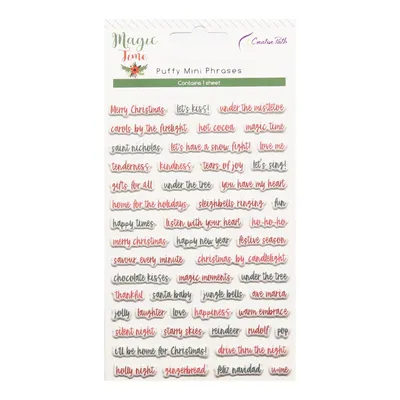 Magic Time
Creative Path
Puffy Mini Phrases
Contains 1 sheet
Merry Christmas let's kiss! under the mistletoe
carols by the firelight hot cocoa magic time
saint nicholas let's have a snow fight! love me
tenderness kindness tears of joy let's sing!
gifts for all under the tree you have my heart
home for the holidays sleighbells ringing fun
happy times listen with your heart ho-ho-ho
merry christmas happy new year festive season
savour every minute christmas by candlelight
chocolate kisses magic moments under the tree
thankful santa baby jungle bells ave maria
jolly laughter love happiness warm embrace
silent night starry skies reindeer rudolf pop
i'll be home for Christmas! drive thru the night
holly night gingerbread feliz navidad u-me